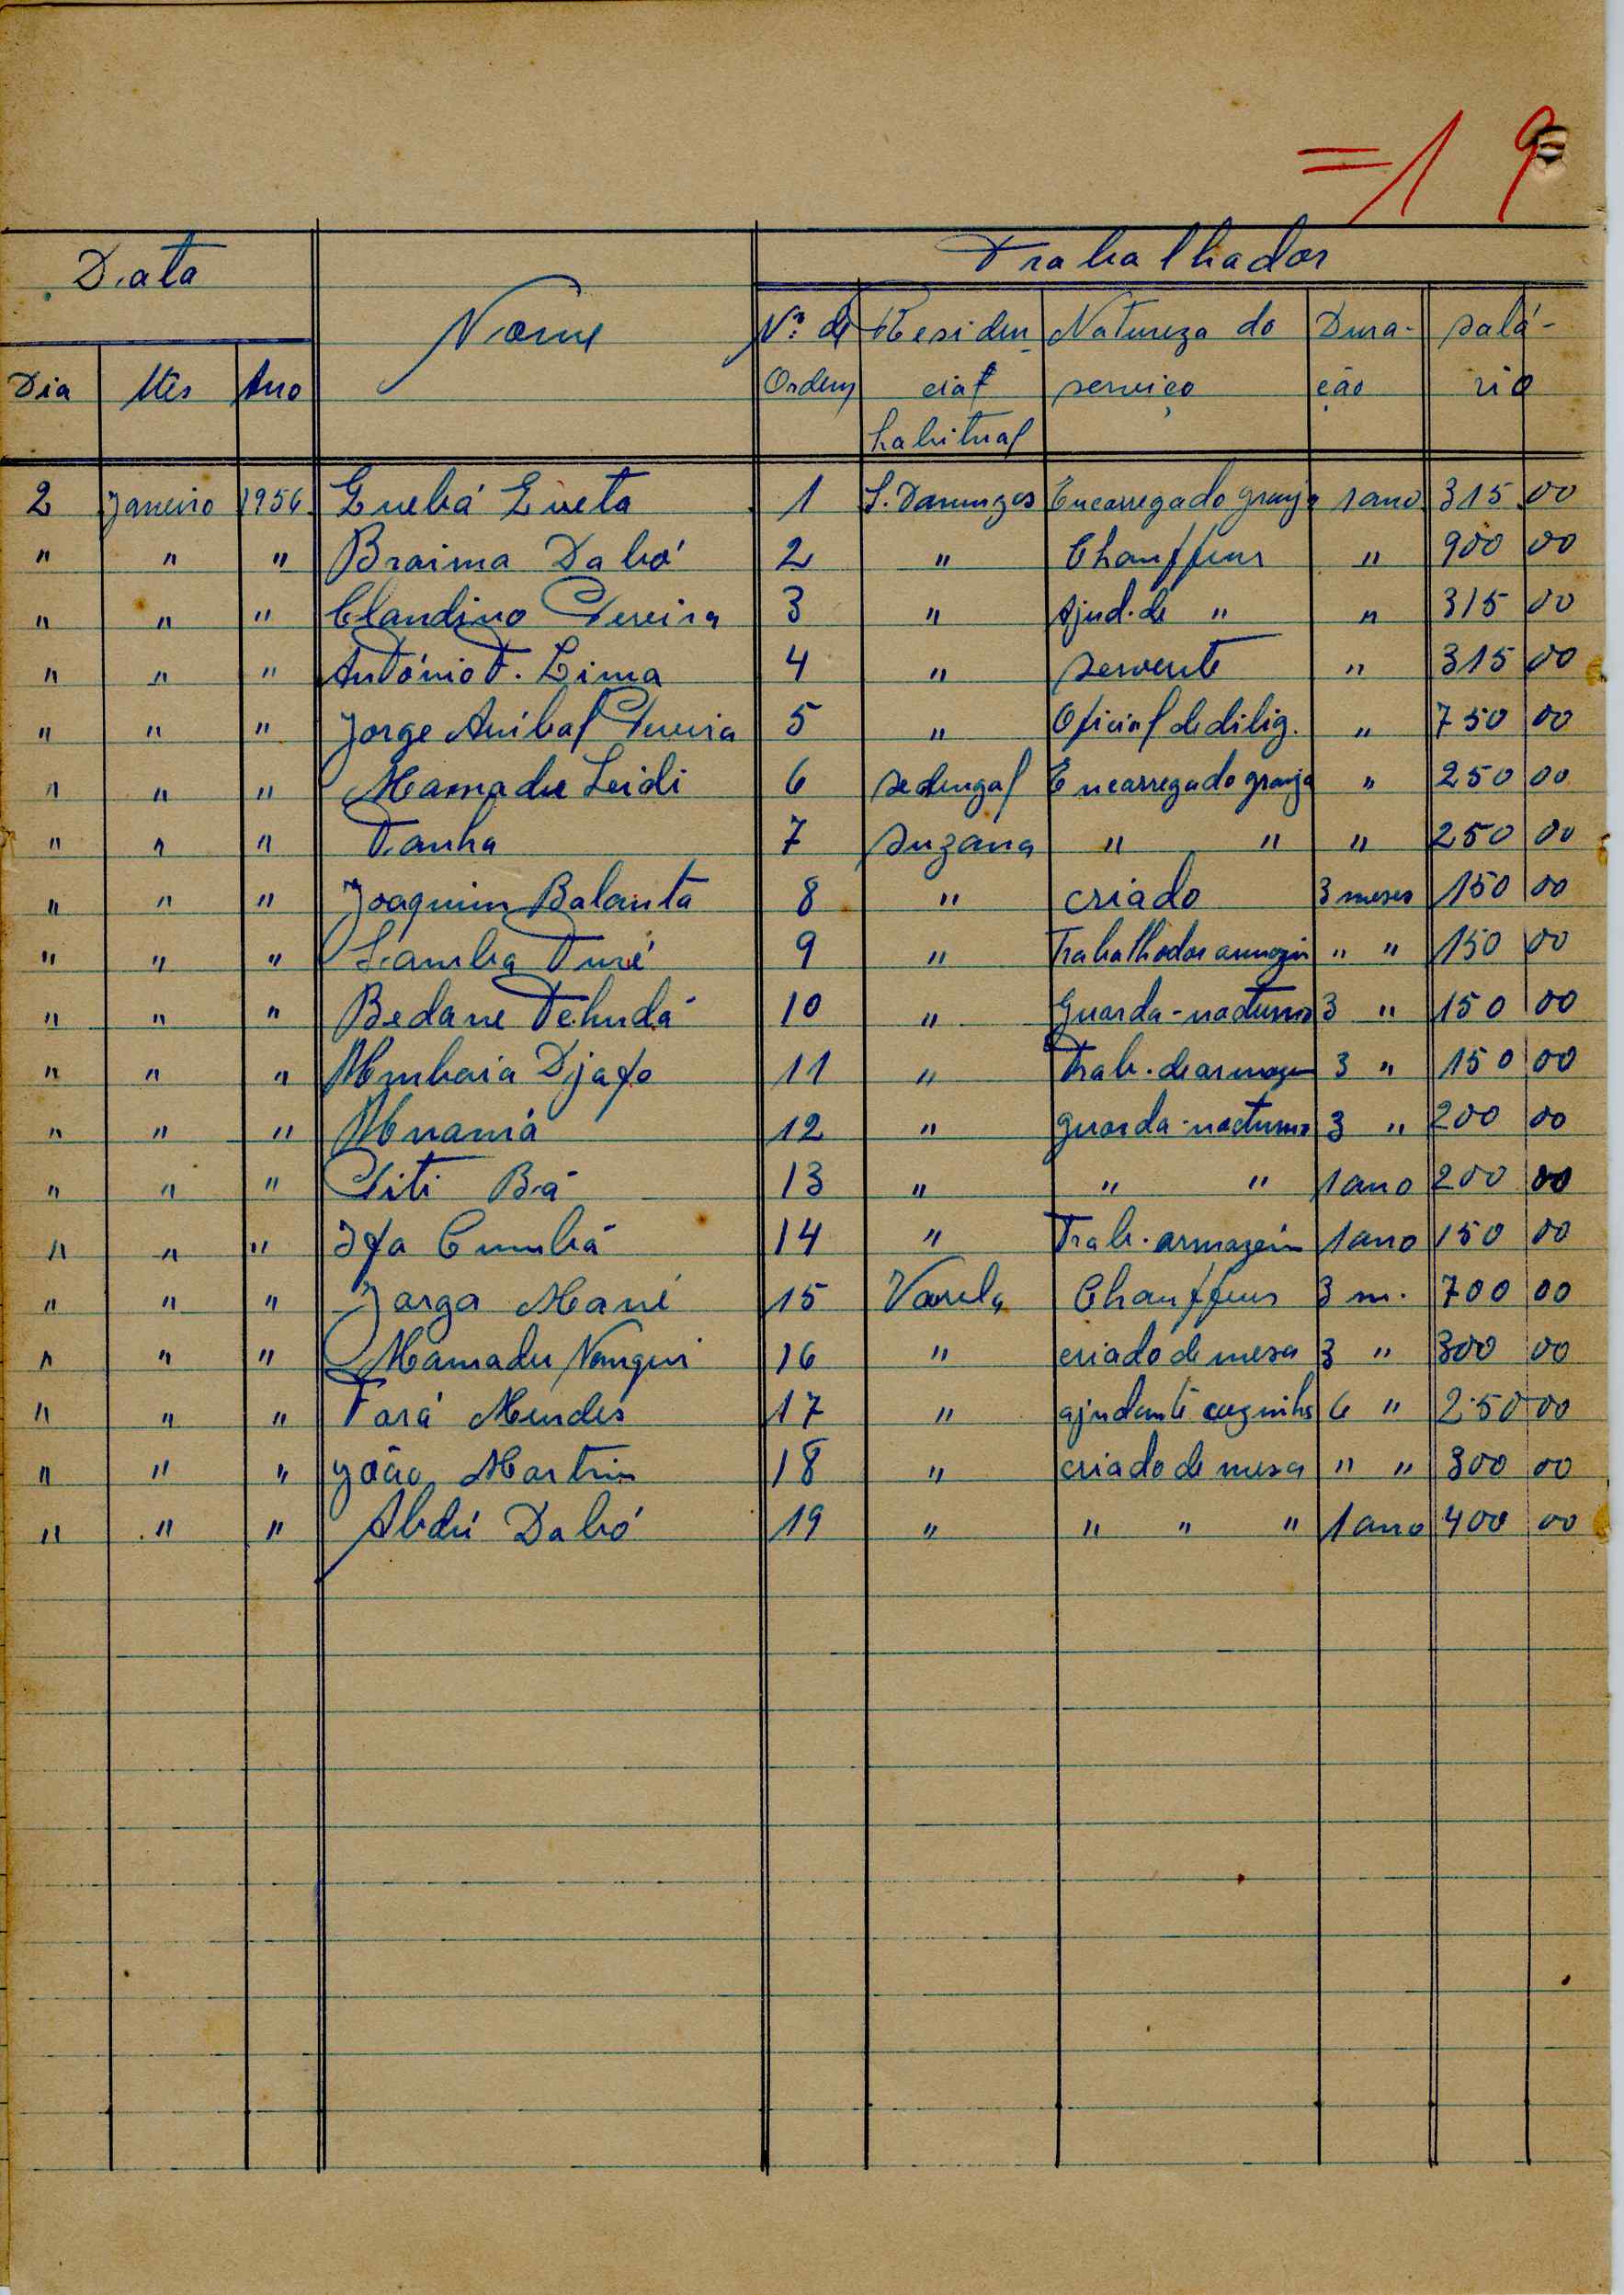 = 1 9
Data Nome Trabalhador
Dia Mês Ano Nº de Ordem Residencial habitual Natureza do serviço Duração salário
2 Janeiro 1956 1 S. Domingos Encarregado granja 1 ano 315 00
" " " Braima Dabó 2 " Chauffeur " 900 00
" " " Claudino Pereira 3 " Ajud. de " " 315 00
" " " António T. Lima 4 " servente " 315 00
" " " Jorge Anibal Pereira 5 " Oficial de dilig. " 750 00
" " " Mamadu Seidi 6 sedengal Encarregado granja " 250 00
" " " Tanha 7 suzana " " " 250 00
" " " Joaquim Balanta 8 " criado 3 meses 150 00
" " " Samba Turé 9 " Trabalhador armazin " " 150 00
" " " Bedane Tchudá 10 " Guarda-nocturno 3 " 150 00
" " " Djafo 11 " Trab. de armazem 3 " 150 00
" " " 12 " guarda-nocturno 3 " 200 00
" " " Piti Bá 13 " " " 1 ano 200 00
" " " Ifa Cumbá 14 " Trab. armazém 1 ano 150 00
" " " Jorga Mané 15 Varela Chauffeur 3 m. 700 00
" " " Mamadu 16 " criado de mesa 3 " 300 00
" " " Fará Mendes 17 " ajudante cozinha 6 " 250 00
" " " João Martin 18 " criado de mesa " " 300 00
" " " Abdú Dabó 19 " " " " 1 ano 400 00